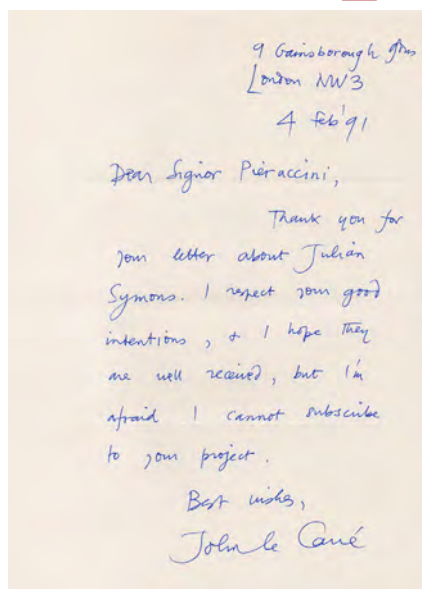 9 Gainsborough Gdns
London NW3
4 Feb '91
Dear Signor Pieraccini,
Thank you for
your letter about Julian
Symons. I respect your good
intentions, & I hope they
are well received, but I'm
afraid I cannot subscribe
to your project.
Best wishes,
John le Carré